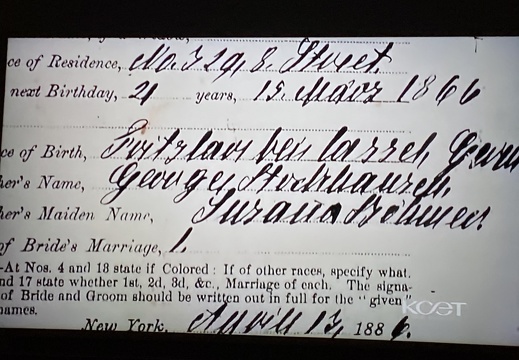 ce of Residence, No. 329, 8. Street
next Birthday, 21 years, 15 März 1866
ce of Birth, Fritzlar bei Cassel, Germ
her's Name, George Hochhausen
her's Maiden Name, Susana Böhmer
of Bride's Marriage, 1.
-At Nos. 4 and 18 state if Colored: If of other races, specify what.
nd 17 state whether 1st, 2d, 3d, &c., Marriage of each. The signa-
of Bride and Groom should be written out in full for the "given
names.
New York, April 13, 1886.
KCET